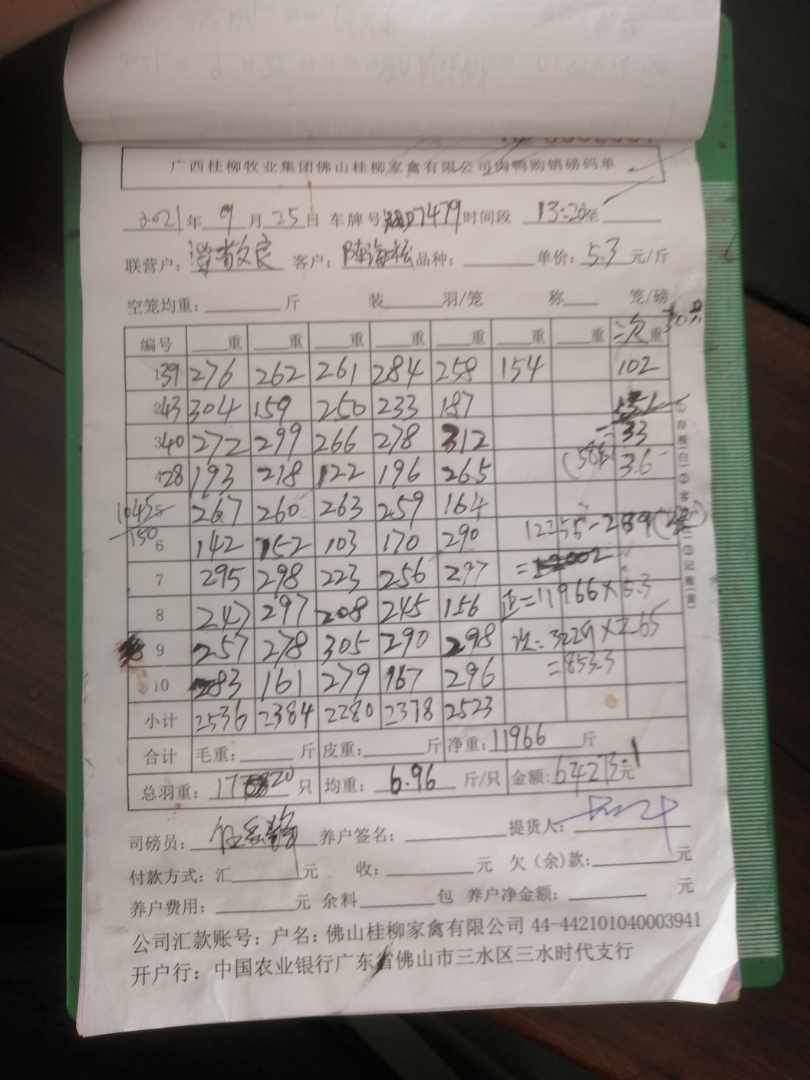 广西桂柳牧业集团佛山桂柳家禽有限公司肉鸭购销磅码单
2021年 9 月 25 日 车牌号 07479 时间段 13:20 至
联营户: 客户: 陈海松 品种: 单价: 5.3 元/斤
空笼均重: 斤 装 羽/笼 称 笼/磅
编号 重 重 重 重 重 重 重 次重
1 39 276 262 261 284 258 154 102
2 43 304 159 250 233 187 151
3 40 272 299 266 278 312 33
4 28 193 218 122 196 265 36
5 267 260 263 259 164
150
6 142 152 103 170 290 12255-289
7 295 298 223 256 297 =
8 247 297 208 245 156 正=11966×5.3
9 257 278 305 290 298 次=322 ×2.65
10 283 161 279 167 296 =853.3
小计 2536 2384 2280 2378 2523
合计 毛重: 斤 皮重: 斤 净重: 11966 斤
总羽重: 只 均重: 6.96 斤/只 金额: 64273元
司磅员: 养户签名: 提货人:
付款方式: 汇 元 收: 元 欠(余)款: 元
养户费用: 元 余料 包 养户净金额: 元
公司汇款账号: 户名: 佛山桂柳家禽有限公司 44-442101040003941
开户行: 中国农业银行广东省佛山市三水区三水时代支行
①存根(白)②客 ③记账(黄)